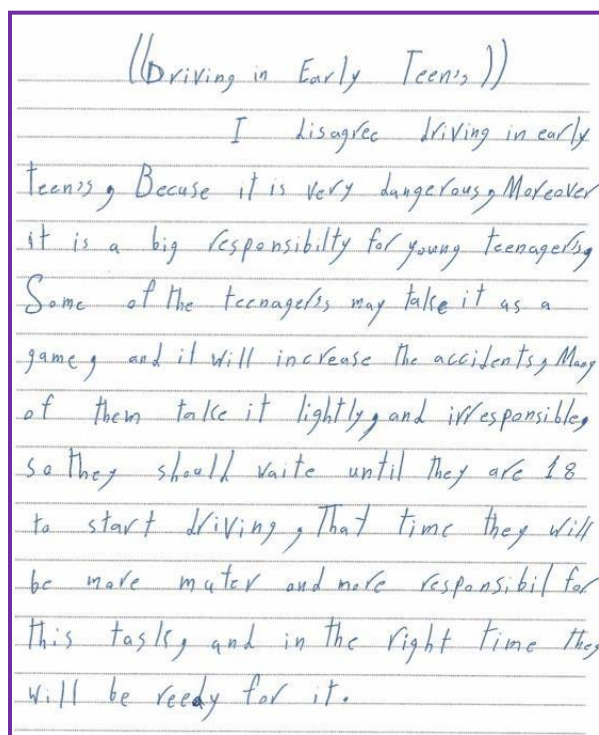 ((Driving in Early Teen's))
I disagree driving in early
teen's, Becuse it is very dangerous, Moreover
it is a big responsibilty for young teenager's,
Some of the teenager's may take it as a
game, and it will increase the accidents, Many
of them take it lightly, and irresponsible,
so they should vaite until they are 18
to start driving, That time they will
be more mater and more responsibil for
this task, and in the right time they
will be reedy for it.